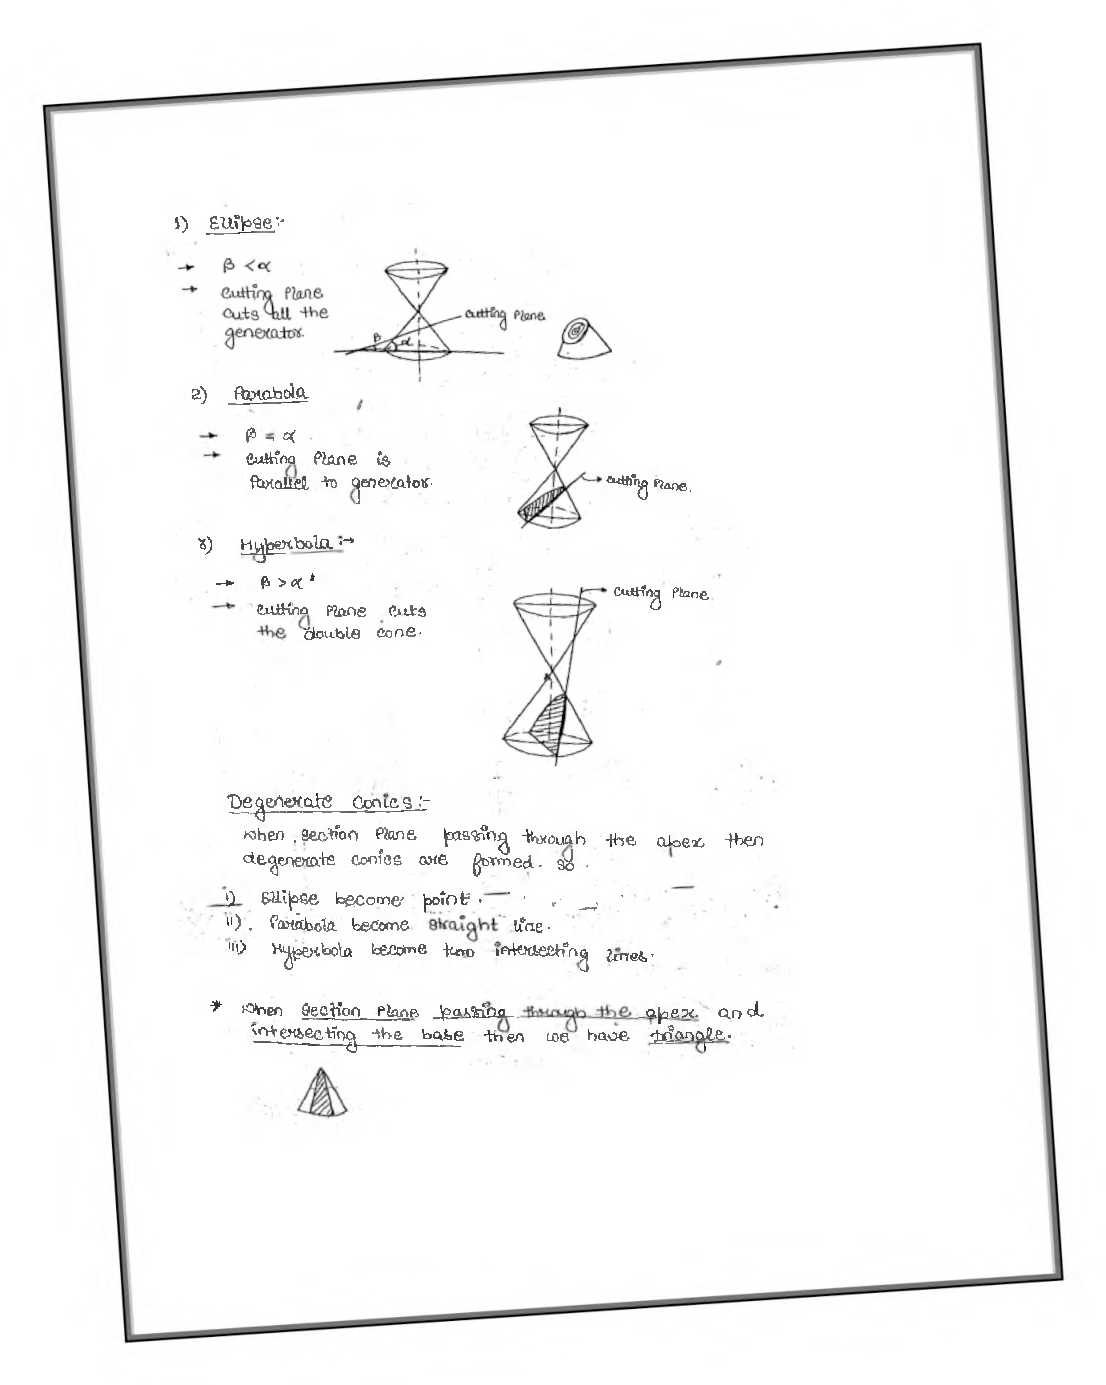 1) Ellipse:-
→ β < α
→ cutting Plane
cuts all the
generator.
cutting Plane
β
α
2) Parabola
→ β = α
→ cutting Plane is
Parallel to generator.
cutting Plane.
३) Hyperbola :→
→ β > α
→ cutting Plane cuts
the double cone.
cutting Plane
Degenerate Conics :-
when section Plane passing through the apex then
degenerate conics are formed. so
i) Ellipse become point.
ii). Parabola become straight line.
iii) Hyperbola become two intersecting lines.
* when section Plane passing through the apex and
intersecting the base then we have triangle.